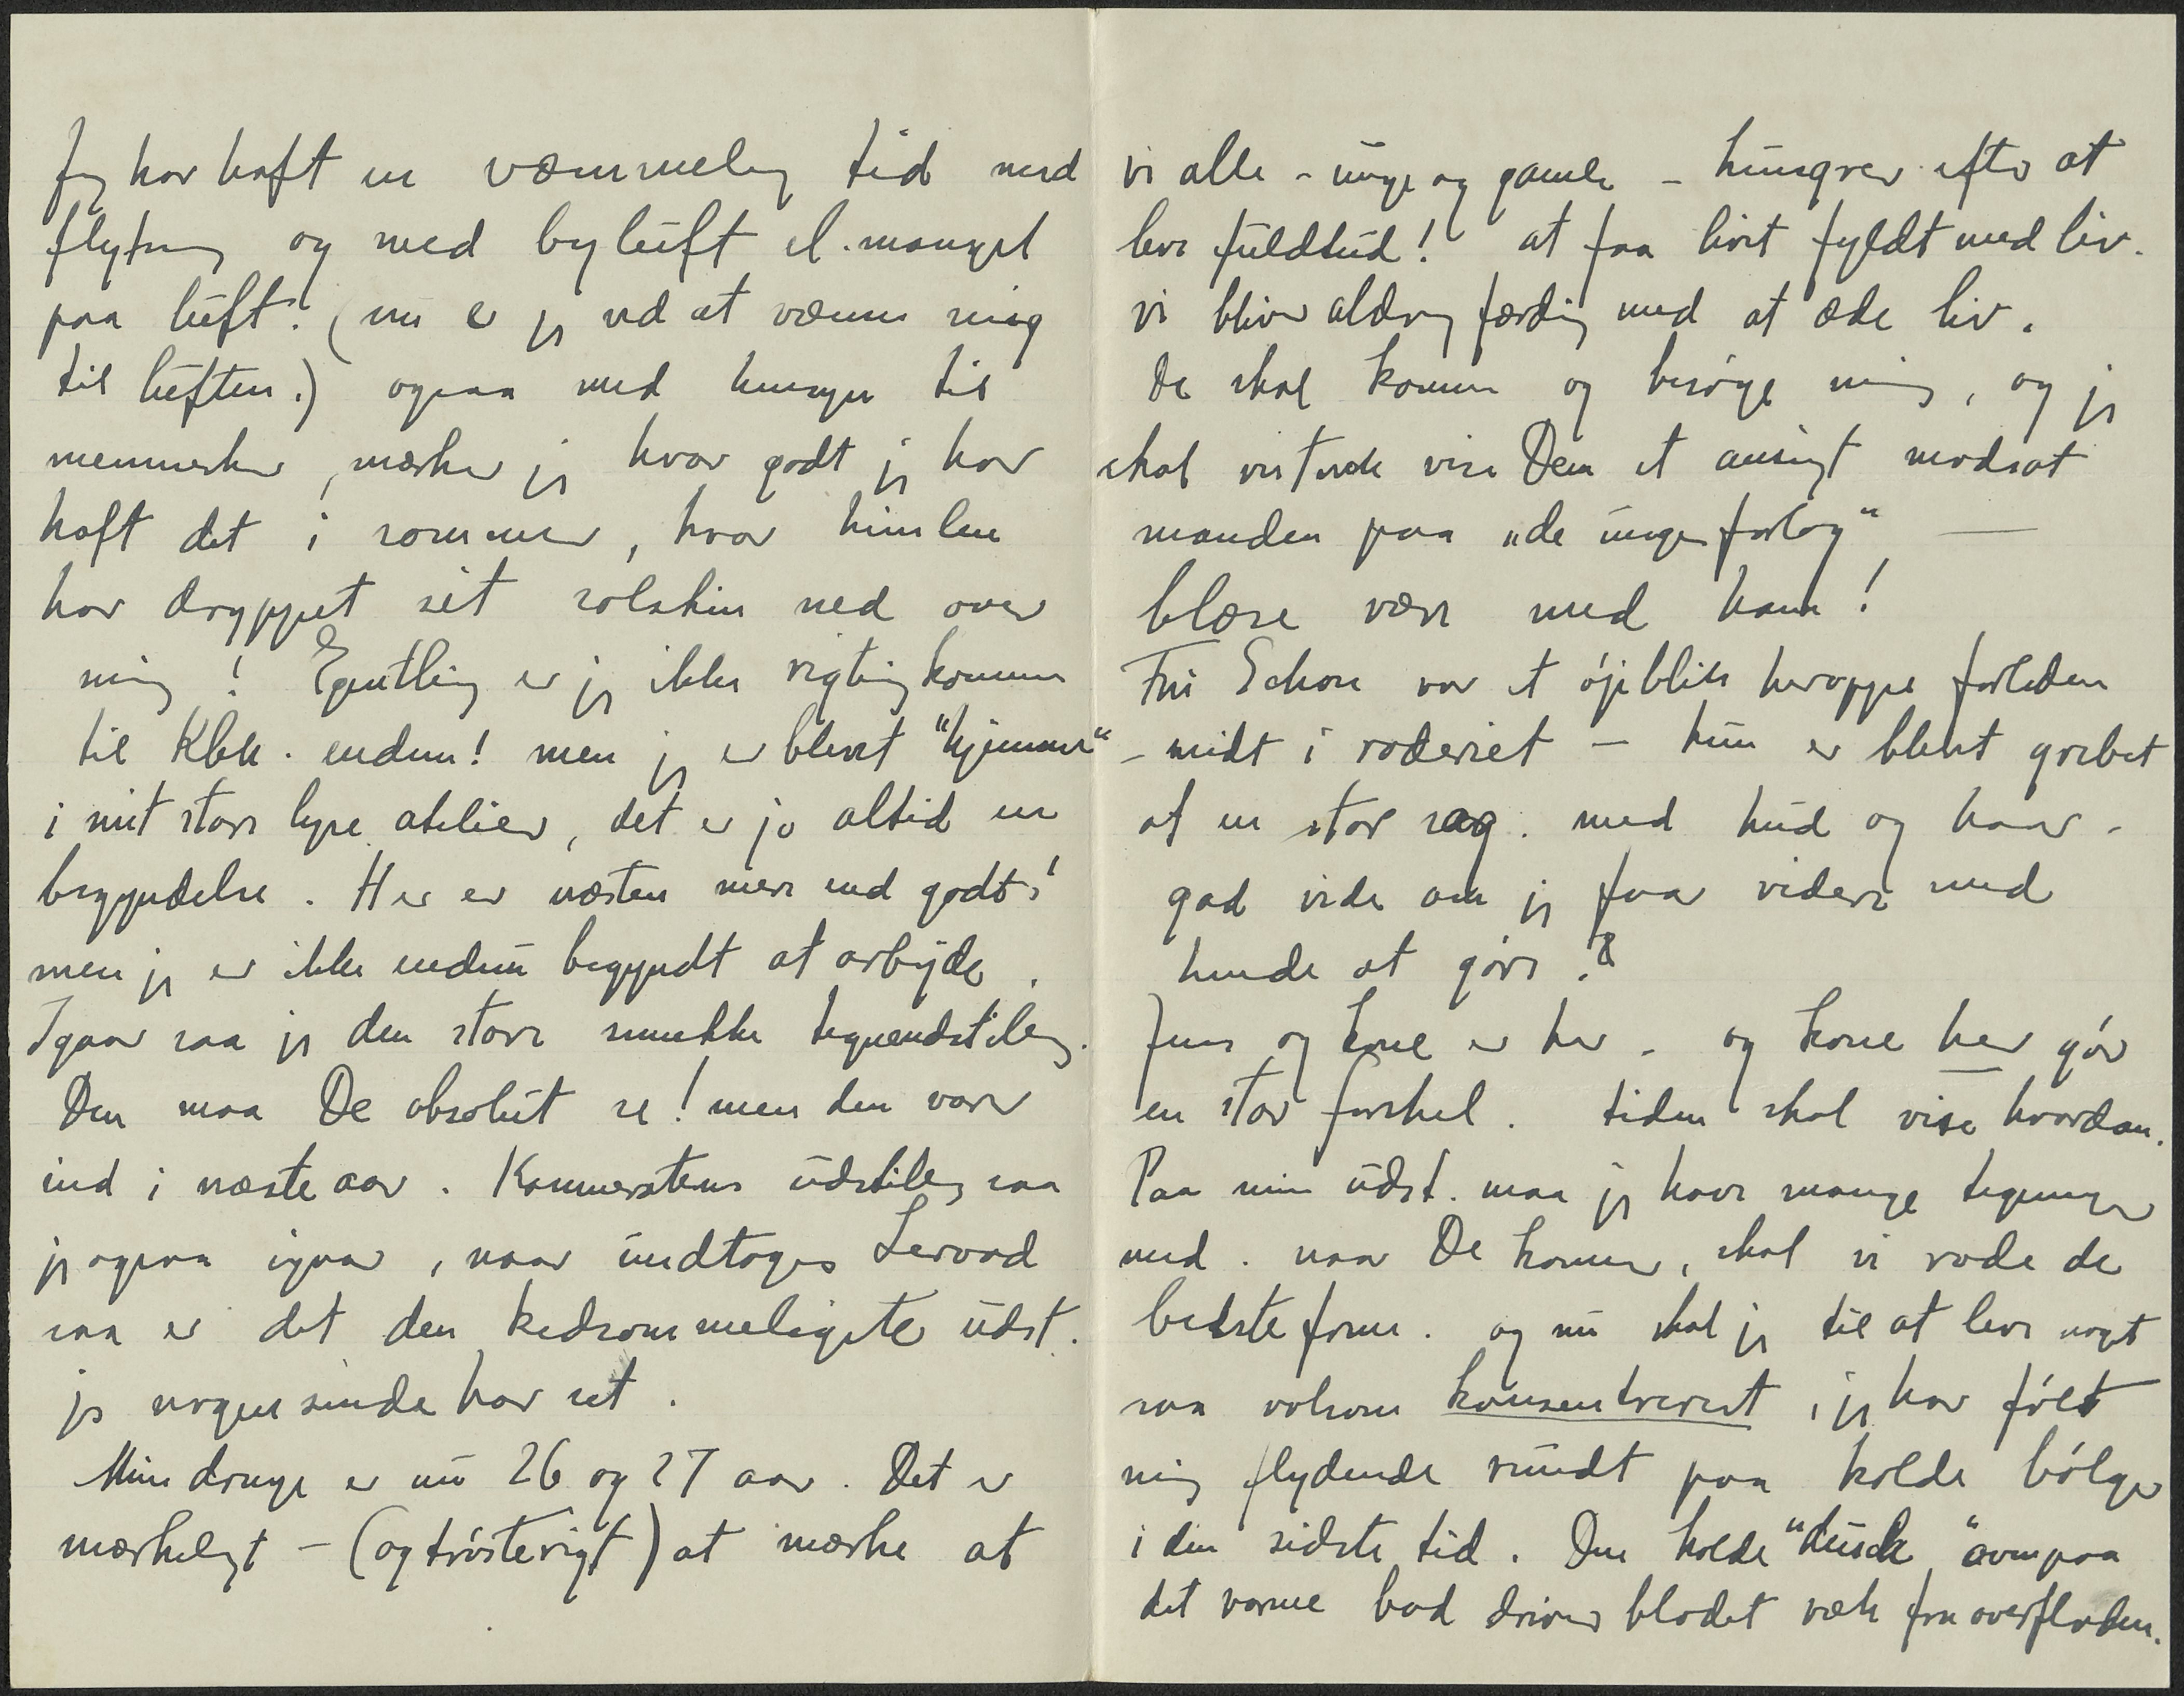 Jeg har haft en væmmelig tid med
flytning og med byluft el. mangel
paa luft! (nu er jeg ved at vænne mig
til luften.) ogsaa med hensyn til
mennesker, mærker jeg hvor godt jeg har
haft det i sommer, hvor himlen
har dryppet sit solskin ned over
mig! Egentlig er jeg ikke rigtig kommen
til Kbh. endnu! men jeg er blevet "hjemme"
i mit store lyse atelier, det er jo altid en
begyndelse. Her er næsten mere end godt!
men jeg er ikke endnu begyndt at arbejde.
Igaar saa jeg den store smukke tegneudstilling.
Den maa De absolut se! men den varer
ind i næste aar. Kammeraternes udstilling saa
jeg ogsaa igaar, naar undtages Lervad
saa er det den kedsommeligste udst.
jeg nogensinde har set.
Mine drenge er nu 26 og 27 aar. Det er
mærkeligt – (og trøsterigt) at mærke at
vi alle – unge og gamle – hungrer efter at
leve fuldtud! at faa livet fyldt med liv.
vi bliver aldrig færdig med at æde liv.
De skal komme og besøge mig, og jeg
skal vise Dem et ansigt modsat
manden paa "de unges forlag" —
blæse være med ham!
Fru Schou var et øjeblik heroppe forleden
– midt i roderiet – hun er blevet grebet
af en stor sag. med hud og haar –
gad vide om jeg faar videre med
hende at gøre?
Jens og kone er her – og kone her gør
en stor forskel. tiden skal vise hvordan.
Paa min udst. maa jeg have mange tegninger
med. naar De kommer, skal vi rode de
bedste frem. og nu skal jeg til at leve noget
saa volsom konsentreret, jeg har følt
mig flydende rundt paa kolde bølger
i den sidste tid. Den kolde "dusch" ovenpaa
det varme bad driver blodet væk fra overfladen.